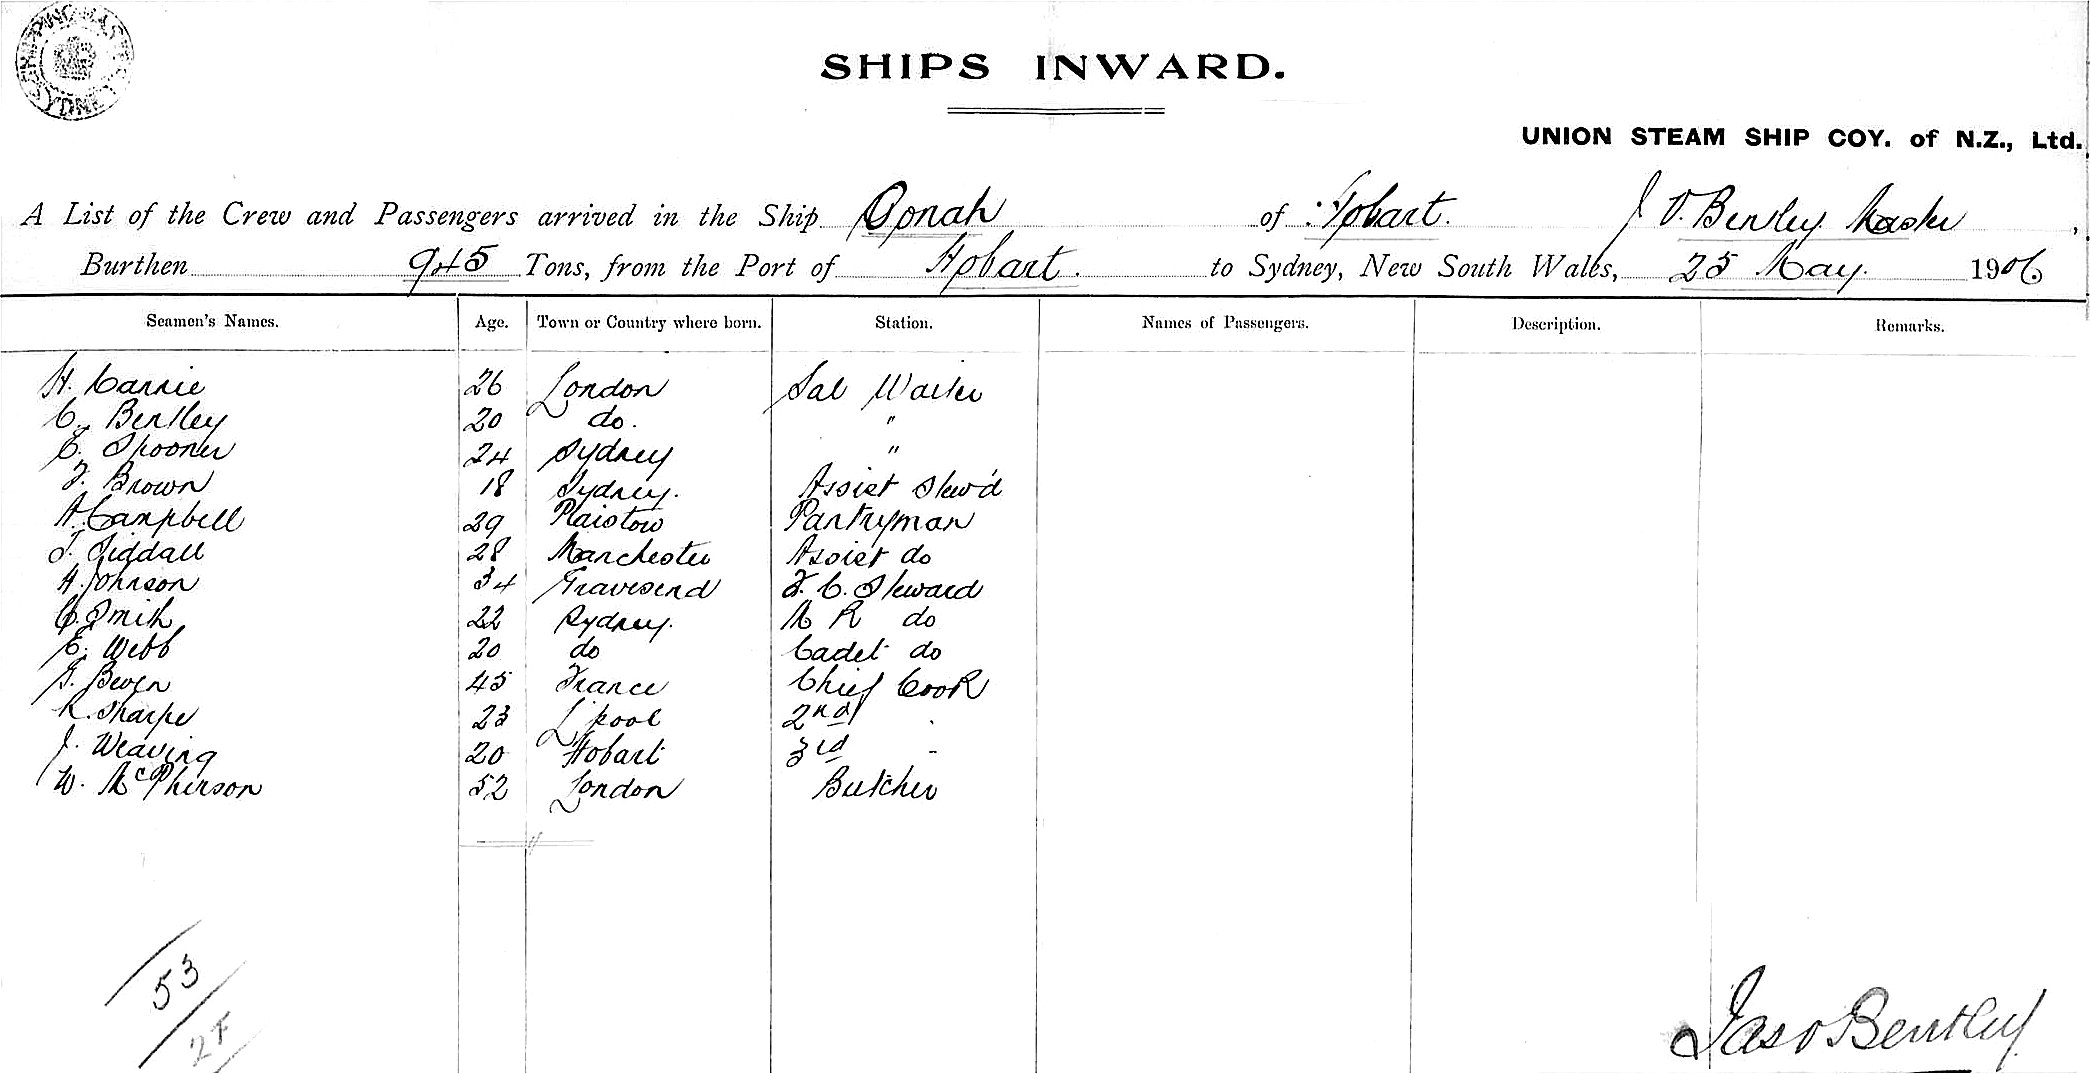 SHIPPING MASTER SYDNEY
SHIPS INWARD.
UNION STEAM SHIP COY. of N.Z., Ltd.
A List of the Crew and Passengers arrived in the Ship Oonah of Hobart. J O. Bentley Master,
Burthen 945 Tons, from the Port of Hobart. to Sydney, New South Wales, 25 May. 1906
Seamen's Names. Age. Town or Country where born. Station. Names of Passengers. Description. Remarks.
H. Carrie 26 London Sal Waiter
C. Bentley 20 do. "
E. Spooner 24 Sydney "
F. Brown 18 Sydney. Assist Stew'd
A. Campbell 29 Plaistow Pantryman
J. Siddall 28 Manchester Assist do
A. Johnson 34 Gravesend F. C. Steward
C. Smith 22 Sydney. M R do
E. Webb 20 do Cadet do
G. 45 France Chief Cook
R. Sharpe 23 L'pool 2nd "
J. Weaving 20 Hobart 3rd "
W. McPherson 52 London Butcher
53
27
Jas O Bentley